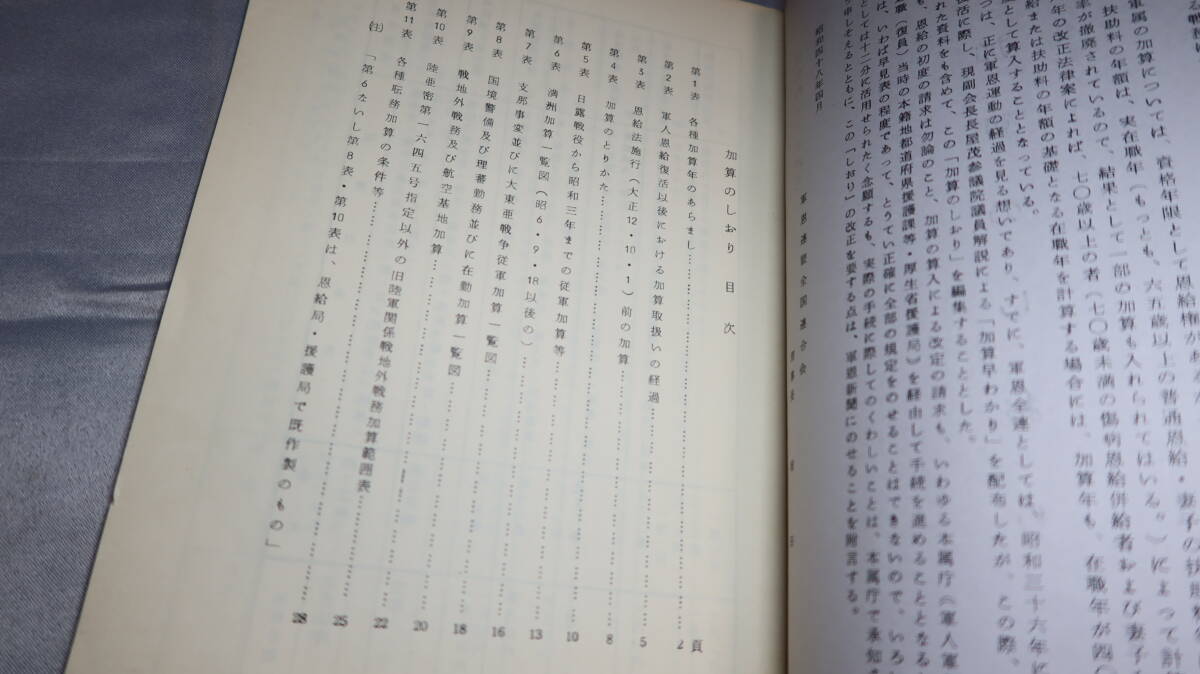 る
軍属の加算については、資格年限として恩給権が
扶助料の年額は、実在職年（もっとも、六五歳以上の普通恩給・妻子の扶助料
率が撤廃されているので、結果として一部の加算も入れられてはいる。）によって計
年の改正法律案によれば、七〇歳以上の者（七〇歳未満の傷病恩給併給者および妻子
給または扶助料の年額の基礎となる在職年を計算する場合には、加算年も、在職年が四〇
として算入することとなっている。
つは、正に軍恩運動の経過を見る想いであり、すでに、軍恩全連としては、昭和三十六年に
復活に際し、現副会長長屋茂参議院議員解説による「加算早わかり」を配布したが、この際、
れた資料をも含めて、この「加算のしおり」を編集することとした。
も、恩給の初度の請求は勿論のこと、加算の算入による改定の請求も、いわゆる本属庁（軍人軍
職（復員）当時の本籍地都道府県援護課等・厚生省援護局）を経由して手続を進めることとなる
は、いわば早見表の程度であって、とうてい正確に全部の規定をのせることはできないので、いろ
としては十二分に活用せられたく念願するも、実際の手続に際してのくわしいことは、本属庁で承知
申しそえるとともに、この「しおり」の改正を要する点は、軍恩新聞にのせることを附言する。
昭和四十八年四月
軍恩連盟全国連合会
加算のしおり 目次
第1表 各種加算年のあらまし 2頁
第2表 軍人恩給復活以後における加算取扱いの経過 5
第3表 恩給法施行（大正12・10・1）前の加算 8
第4表 加算のとりかた 10
第5表 日露戦役から昭和三年までの従軍加算等 13
第6表 満洲加算一覧図（昭6・9・18以後の） 16
第7表 支那事変並びに大東亜戦争従軍加算一覧図 18
第8表 国境警備及び理蕃勤務並びに在勤加算一覧図 20
第9表 戦地外戦務及び航空基地加算 22
第10表 陸亜密第一六四五号指定以外の旧陸軍関係戦地外戦務加算範囲表 25
第11表 各種職務加算の条件等 28
（注） 「第6ないし第8表・第10表は、恩給局・援護局で既作製のもの」